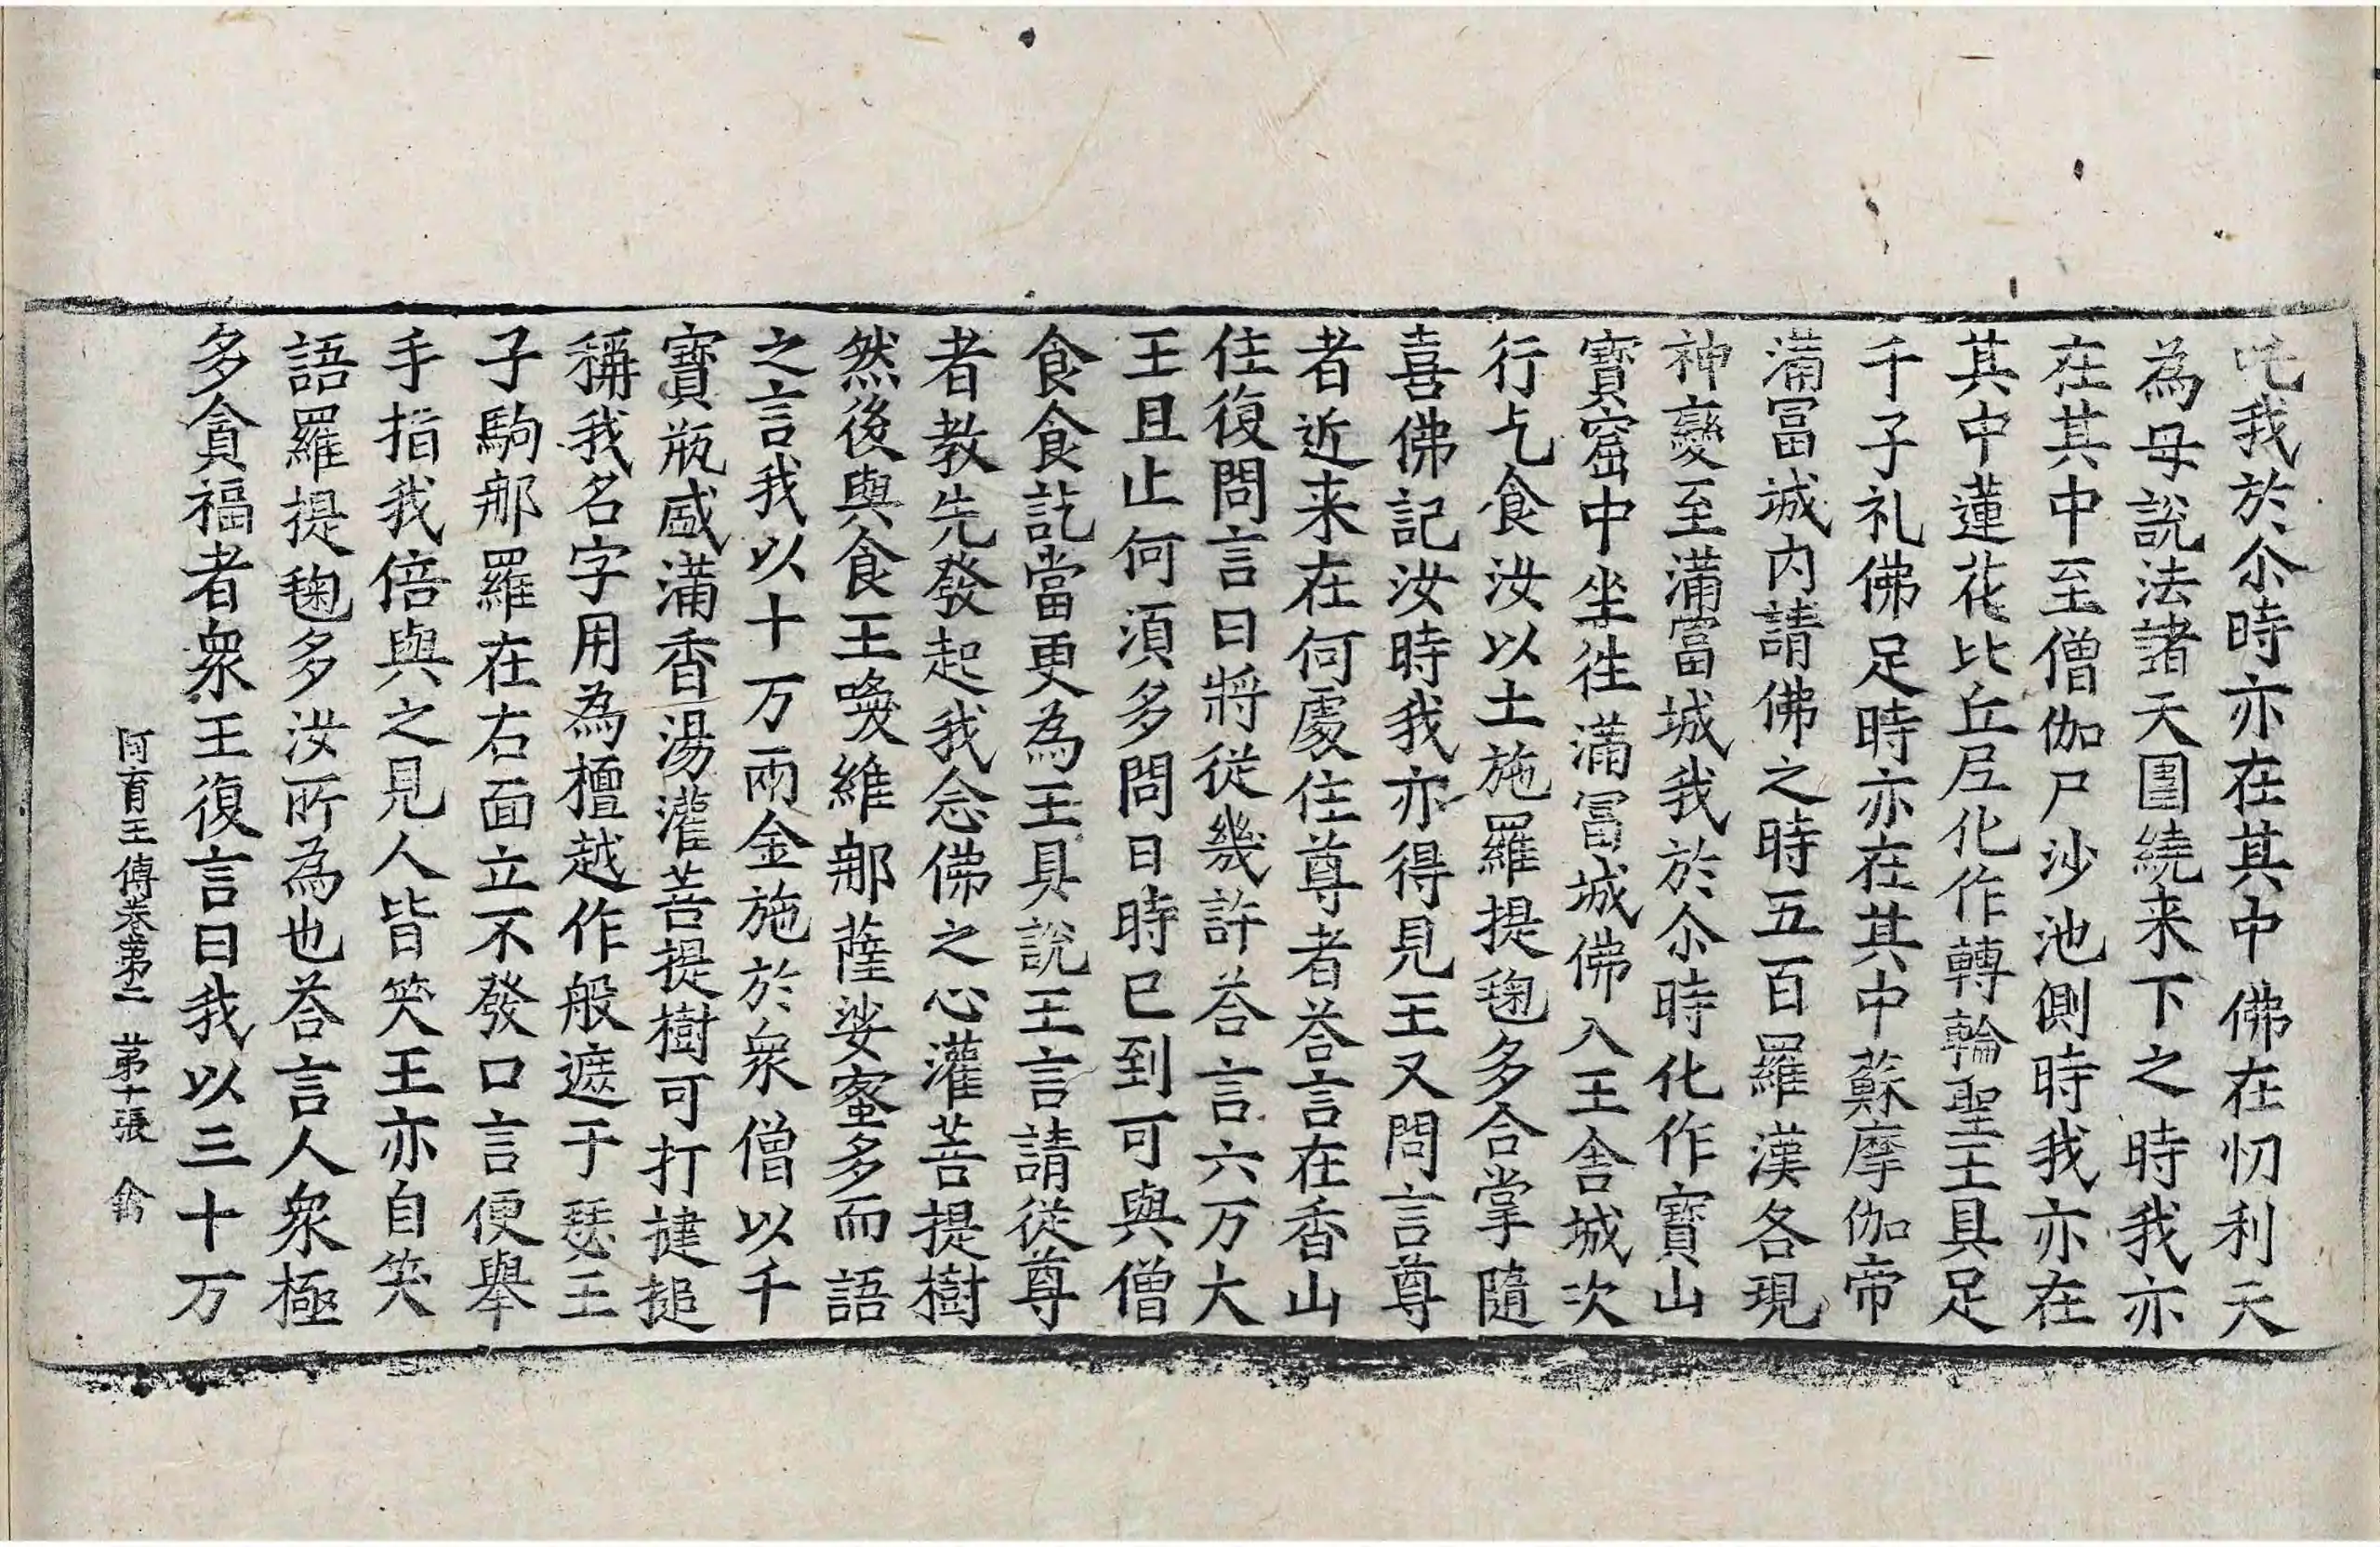 吒我於尒時亦在其中佛在忉利天
為母說法諸天圍繞来下之時我亦
在其中至僧伽尸沙池側時我亦在
其中蓮花比丘尼化作轉輪聖王具足
千子礼佛足時亦在其中蘇摩伽帝
滿冨城內請佛之時五百羅漢各現
神變至滿富城我於尒時化作寶山
寶窟中坐往滿冨城佛入王舎城次
行乞食汝以土施羅提毱多合掌隨
喜佛記汝時我亦得見王又問言尊
者近来在何處住尊者荅言在香山
住復問言曰將從幾許荅言六万大
王且止何須多問日時已到可與僧
食食訖當更為王具說王言請從尊
者教先發起我念佛之心灌菩提樹
然後與食王喚維那薩娑蜜多而語
之言我以十万兩金施於衆僧以千
寶瓶盛滿香湯灌菩提樹可打揵搥
稱我名字用為檀越作般遮于瑟王
子駒那羅在右面立不發口言便舉
手指我倍與之見人皆笑王亦自笑
語羅提毱多汝所為也荅言人衆極
多貪福者衆王復言曰我以三十万
阿育王傳卷第二 第十張 禽